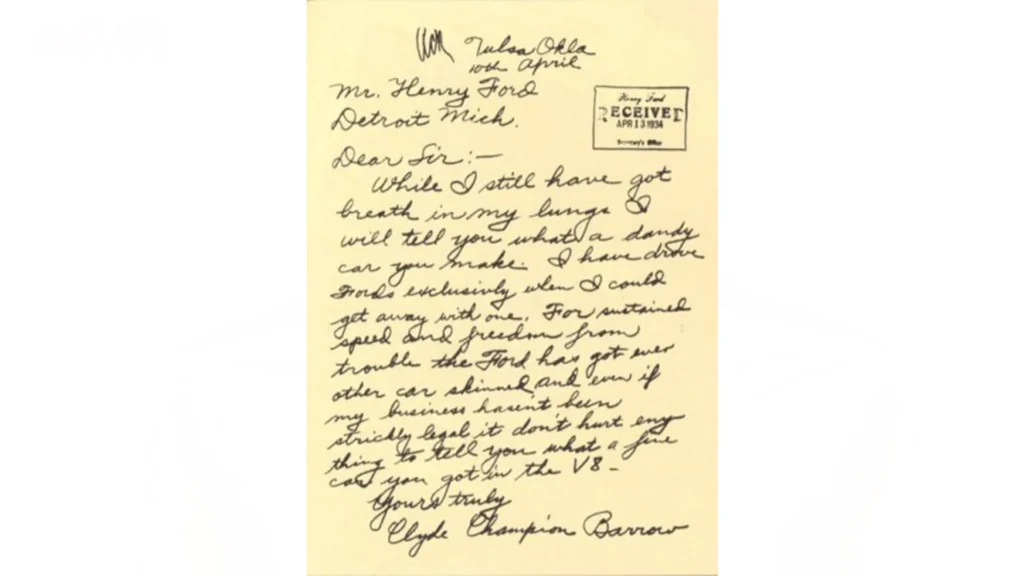 Tulsa Okla
10th April
Mr. Henry Ford
Detroit Mich.
Henry Ford
RECEIVED
APR 13 1934
Secretary's Office
Dear Sir:—
While I still have got
breath in my lungs I
will tell you what a dandy
car you make. I have drove
Fords exclusivly when I could
get away with one. For sustained
speed and freedom from
trouble the Ford has got ever
other car skinned and even if
my business hasen't been
strickly legal it don't hurt eny
thing to tell you what a fine
car you got in the V8 –
Yours truly
Clyde Champion Barrow